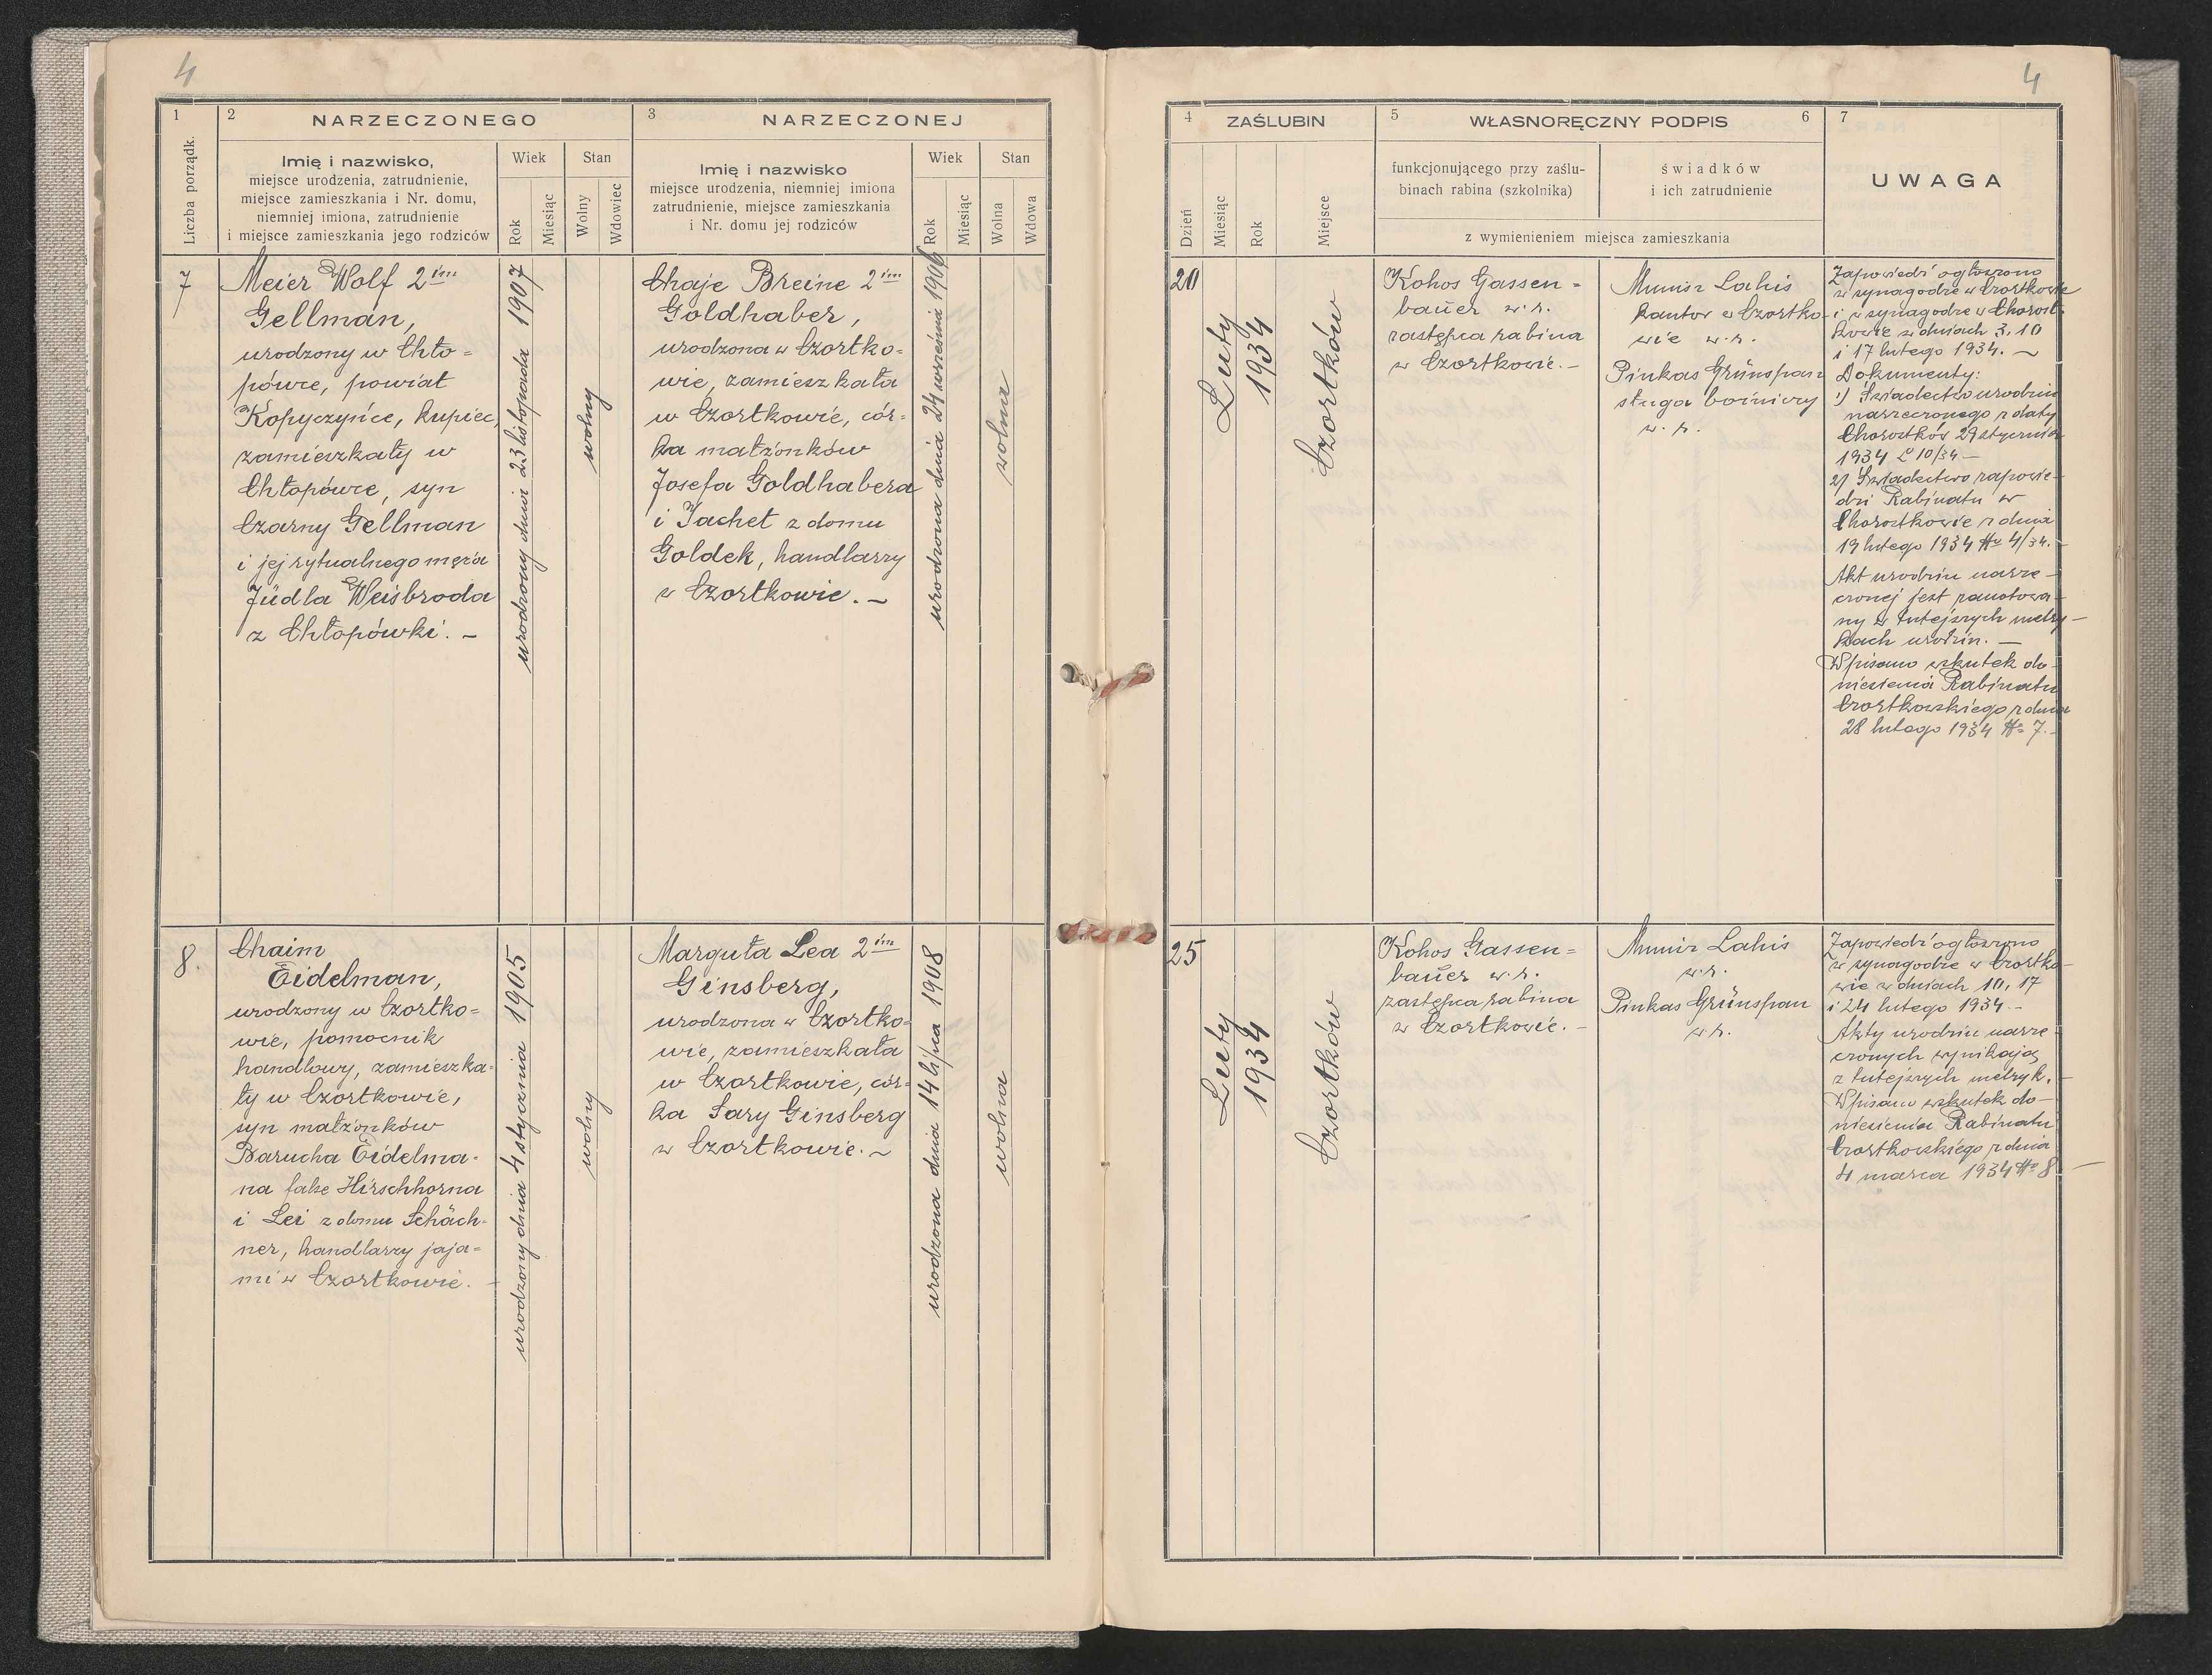 4
1
Liczba porządk.
2
NARZECZONEGO
Imię i nazwisko,
miejsce urodzenia, zatrudnienie,
miejsce zamieszkania i Nr. domu,
niemniej imiona, zatrudnienie
i miejsce zamieszkania jego rodziców
Wiek
Rok
Miesiąc
Stan
Wolny
Wdowiec
3
NARZECZONEJ
Imię i nazwisko
miejsce urodzenia, niemniej imiona
zatrudnienie, miejsce zamieszkania
i Nr. domu jej rodziców
Wiek
Rok
Miesiąc
Stan
Wolna
Wdowa
7
Meier Wolf 2im
Gellman,
urodzony w Chło=
pówce, powiat
Kopyczyńce, kupiec,
zamieszkały w
Chłopówce, syn
Czarny Gellman
i jej rytualnego męża
Jüdla Weisbroda
z Chłopówki. –
urodzony dnia 23 listopada 1907
wolny
Chaje Breine 2im
Goldhaber,
urodzona w Czortko=
wie, zamieszkała
w Czortkowie, cór=
ka małżonków
Josefa Goldhabera
i Jachet z domu
Goldek, handlarzy
w Czortkowie. –
urodzona dnia 24 września 1906
wolna
8.
Chaim
Eidelman,
urodzony w Czortko=
wie, pomocnik
handlowy, zamieszka=
ły w Czortkowie,
syn małżonków
Barucha Eidelma-
na false Hirschhorna
i Lei z domu Schäch-
ner, handlarzy jaja=
mi w Czortkowie. –
urodzony dnia 4 stycznia 1905
wolny
Marguła Lea 2im
Ginsberg,
urodzona w Czortko=
wie, zamieszkała
w Czortkowie, cór=
ka Sary Ginsberg
w Czortkowie. –
urodzona dnia 14 lipca 1908
wolna
4
4
ZAŚLUBIN
Dzień
Miesiąc
Rok
Miejsce
5
WŁASNORĘCZNY PODPIS
6
funkcjonującego przy zaślu-
binach rabina (szkolnika)
świadków
i ich zatrudnienie
z wymienieniem miejsca zamieszkania
7
UWAGA
20
Luty
1934
Czortków
Kohos Gassen=
bauer w.r.
zastępca rabina
w Czortkowie. –
Munisz Lahis
kantor w Czortko-
wie w.r.
Pinkas Grünspan
sługa bożniczy
w.r.
Zapowiedzi ogłoszono
w synagodze w Czortkowie
i w synagodze w Chorost-
kowie w dniach 3, 10
i 17 lutego 1934. –
Dokumenty:
1) Świadectwo urodzin
narzeczonego z daty
Chorostków 29 stycznia
1934 L 10/34 –
2) Świadectwo zapowie-
dzi Rabinatu w
Chorostkowie z dnia
19 lutego 1934 No 4/34. –
Akt urodzin narze-
czonej jest zanotowa-
ny w tutejszych metry-
kach urodzin. –
Wpisano wskutek do-
niesienia Rabinatu
Czortkowskiego z dnia
28 lutego 1934 No 7. –
25
Luty
1934
Czortków
Kohos Gassen=
bauer w.r.
zastępca rabina
w Czortkowie. –
Munisz Lahis
w.r.
Pinkas Grünspan
w.r.
Zapowiedzi ogłoszono
w synagodze w Czortko-
wie w dniach 10, 17
i 24 lutego 1934 –
Akty urodzin narze-
czonych wynikają
z tutejszych metryk.
Wpisano wskutek do-
niesienia Rabinatu
Czortkowskiego z dnia
4 marca 1934 No 8 –